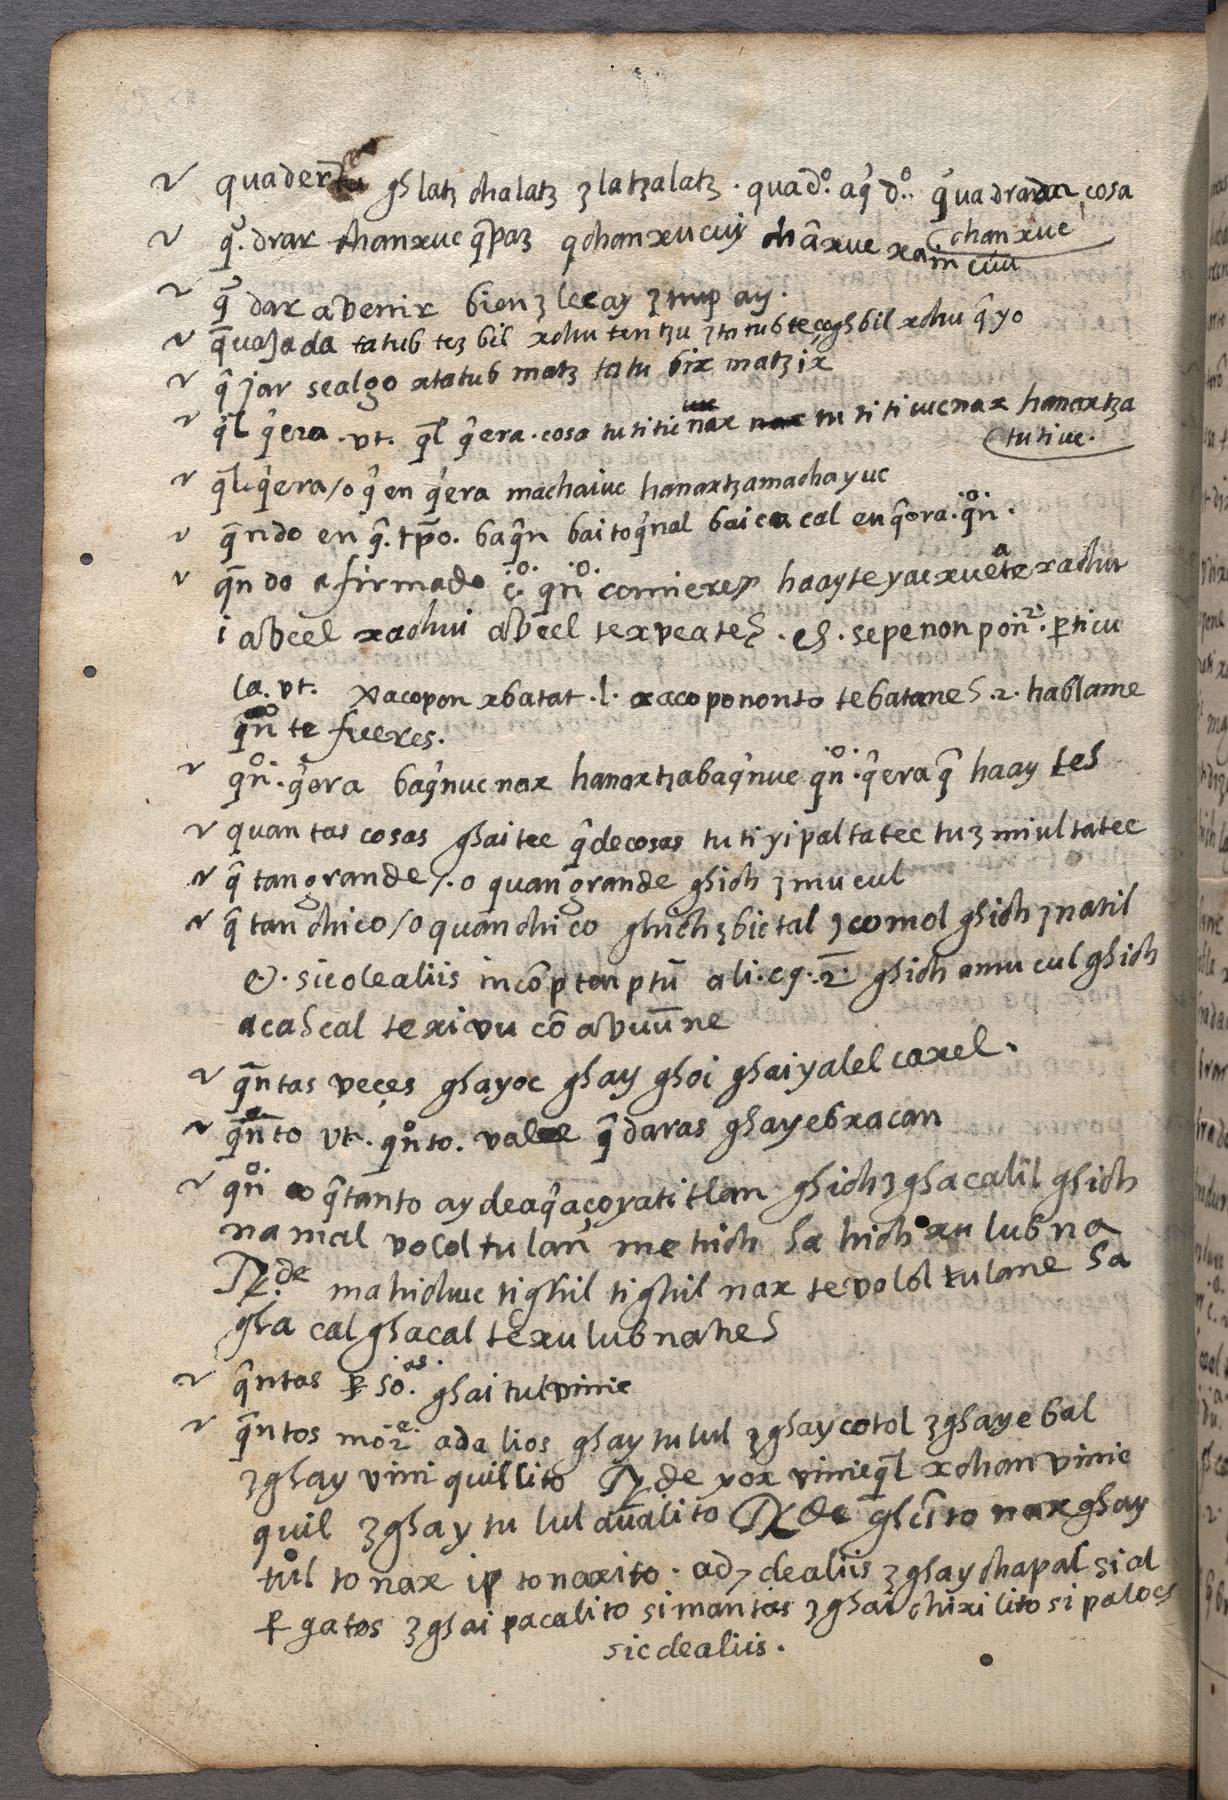 quader ghlatz chalatz ʒlatzalatz . quadº. aq̃ dº. quadrada, cosa
q̃. drar thanxuc q̃paʒ qchanxucuy chãxue xam cuu (chanxue
q̃ dar avenir bienʒ lecay ʒnup ay.
q̃uajada tatub teʒ bil xchu ten tzu ʒtatub tecoghbil xchu q̃yo
q̃jar sealgo xtatub matz tatu bix matzix
q̃l q̃era . vt. q̃l q̃era . cosa tutitiuc nax tu titiucnax hanaxtza (tutiuc.
q̃l q̃era / o q̃en q̃era machaiuc hanaxtzamachayuc
q̃ndo en q̃. tp̃o. baq̃n baitoq̃nal baicacal en q̃ora . q̃nº.
q̃ndo afirmado .cº. q̃nº comieres haayteyaexueate xachu
i avcel xachui avcel texveateh . eh . sepenonponr. p̱ticu
la. vt. xacopon xbatat . l. xacopononto tebataneh .2. hablame
q̃nº te fueres.
q̃nº. q̃era baq̃nucnax hanaxtzabaq̃nuc q̃nº. q̃era q̃ haay teh
quantas cosas ghaitec q̃decosas tutiyipaltatec tuʒmiultatec
q̃ tangrande /. o quan grande ghich ʒmucul
q̃ tanchico / o quan chico ghichʒbictal ʒcomol ghich ʒnatil
et. sicdealiis incõpten ptũ ali.cq.2. ghich amucul ghich
acahcal texivu cõ avuũne
q̃ntas veçes ghayoc ghay ghoi ghaiyalel caxel.
q̃nto vt. q̃nto. vale q̃ daras ghayebxacan
q̃nº q̃tanto aydeaq̃açoyatitlan ghichʒghacalil ghich
namal vocol tulan me hich ha hich xu lubna
Rde mahichuc tighil tighil nax tevolol tulane ha
ghacal ghacal texulubnaneh
q̃ntas p̱soas. ghaitulvinic
q̃ntos mora. adalios ghaytulul ʒghaycotol ʒghayebal
ʒghay vini quillito Rde yox vinicq̃l xchanvinic
quil ʒghaytu lul aualito Rde ghcto nax ghay
tul tonax ip tonaxito . ad dealiis ʒghaychapal si al
p̱gatos ʒghai pacalito si mantas ʒghai chixilito si paloes
sic dealiis .